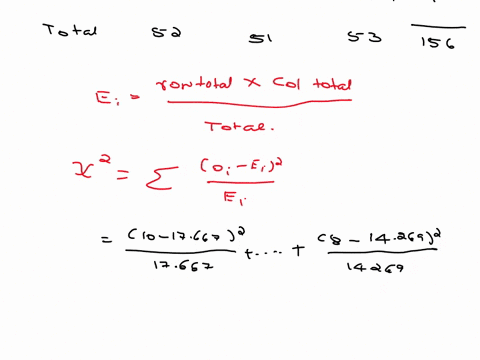 Total 52 51 53 156
Ei = row total X Col total / Total.
X² = Σ (oi - Ei)² / Ei
= (10 - 17.667)² / 17.667 + .... + (8 - 14.269)² / 14269